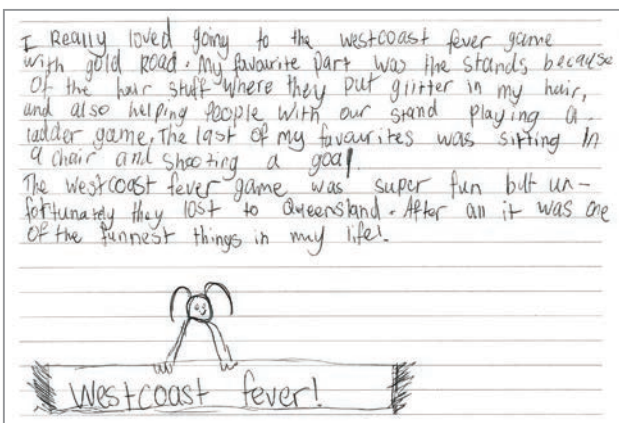 I Really loved going to the westcoast fever game
with gold Road. My favourite part was the stands because
Of the hair stuff where they put glitter in my hair,
and also helping people with our stand playing a
ladder game. The last of my favourites was sitting In
a chair and shooting a goal.
The westcoast fever game was super fun but un-
fortunately they lost to Queensland. After all it was one
Of the funnest things in my life!
Westcoast fever!